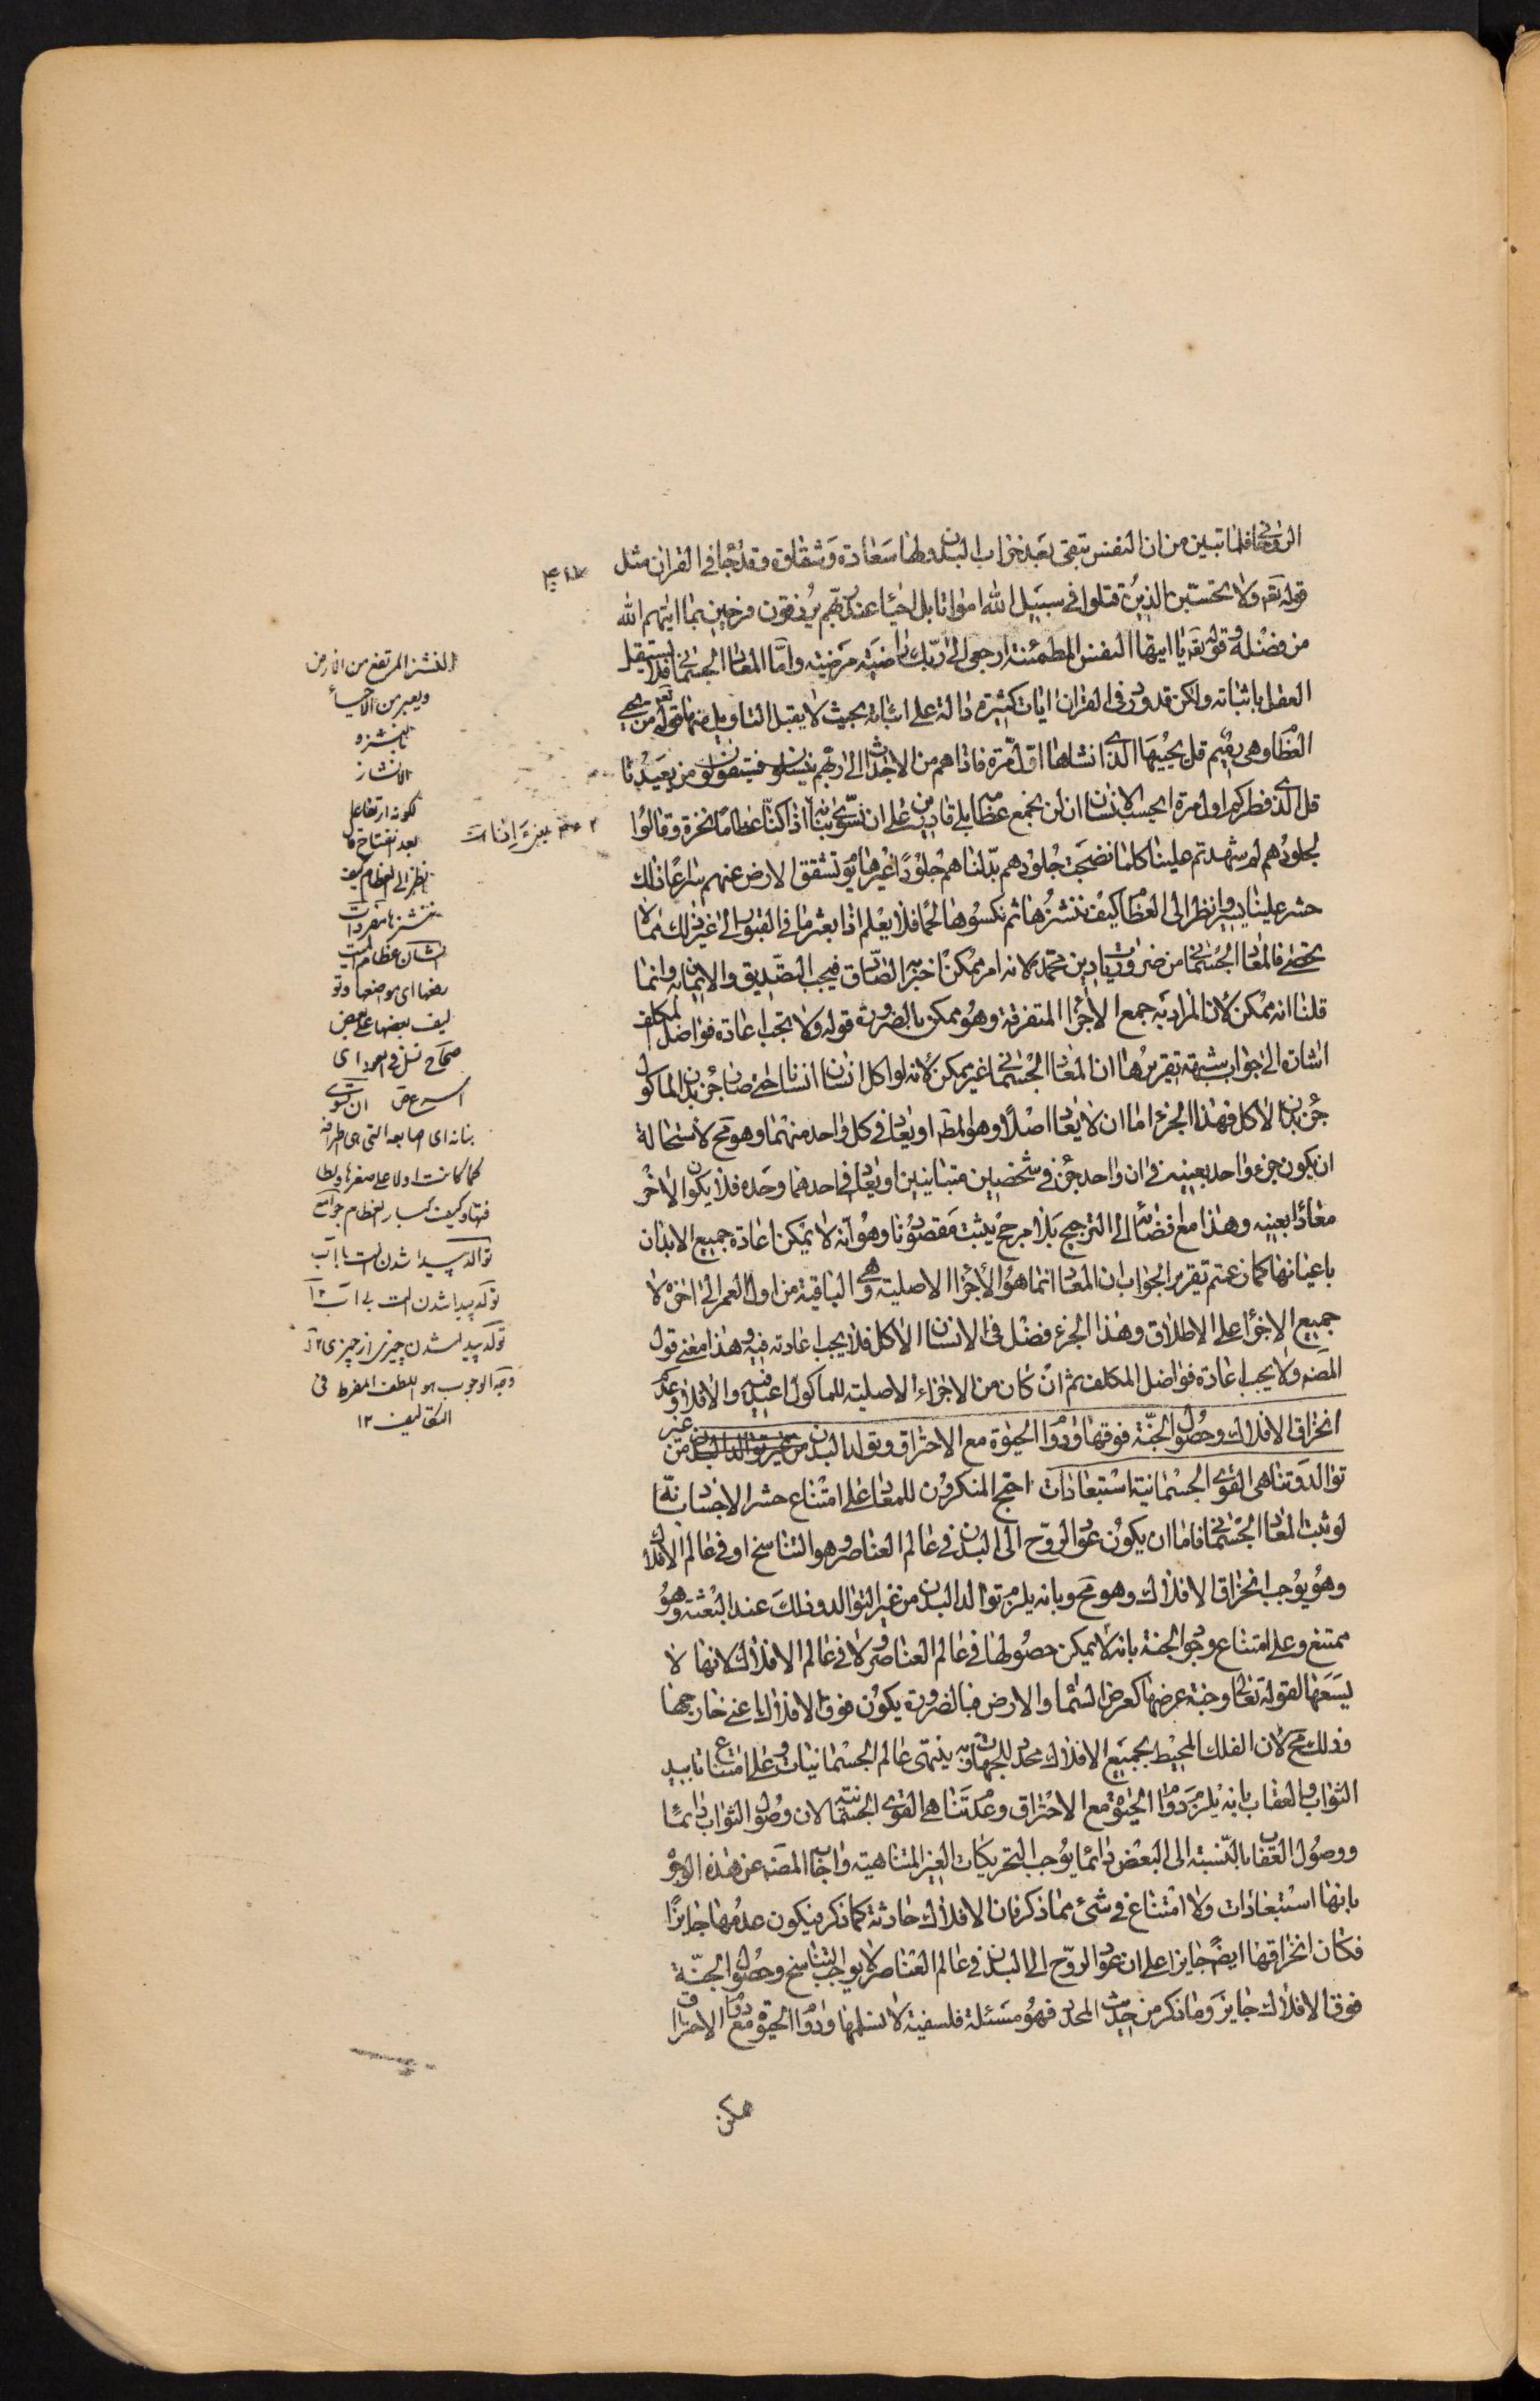 الروحانى فلما تبين من ان النفس تبقى بعد خراب البدن ولها سعادة وشقاوة وقد جا فى القران مثل
قوله تعه ولا تحسبن الذين قتلوا فى سبيل الله امواتا بل احياء عند ربهم يرزقون فرحين بما اتيهم الله
من فضله وقوله تعه يا ايتها النفس المطمئنة ارجعى الى ربك راضية مرضية واما المعاد الجسمانى فلا يستقيل
العقل باثباته ولكن قد ورد فى القران ايات كثيرة دالة على اثباته بحيث لا يقبل التاويل منها قوله تعه من يحيى
العظام وهى رميم قل يحييها الذى انشاها اول مرة فاذا هم من الاجداث الى ربهم ينسلون فسيقولون من يعيدنا
قل الذى فطركم اول مرة ايحسب الانسان ان لن نجمع عظامه بلى قادرين على ان نسوى بنانه اذا كنا عظاما نخرة وقالوا
لجلودهم لم شهدتم علينا كلما نضجت جلودهم بدلناهم جلودا غيرها يوم تشقق الارض عنهم سراعا ذلك
حشر علينا يسير وانظر الى العظام كيف ننشزها ثم نكسوها لحما افلا يعلم اذا بعثر ما فى القبور الى غير ذلك مما لا
يحصى فالمعاد الجسمانى من ضروريات دين محمد لانه امر ممكن اخبر به الصادق فيجب التصديق والايمان به وانما
قلنا انه ممكن لان المراد به جمع الاجزاء المتفرقة وهو ممكن بالضرورة قوله ولا تجب اعادة فواضل المكلف
اشارة الى جواب شبهة تقريرها ان المعاد الجسمانى غير ممكن لانه لو اكل انسان انسانا حتى صار جزء بدن الماكول
جزء بدن الاكل فهذا الجزء اما ان لا يعاد اصلا وهو المط او يعاد فى كل واحد منهما وهو مح لاستحالة
ان يكون جزء واحد بعينه فى ان واحد جزء فى شخصين متباينين او يعاد فى احدهما وحده فلا يكون الاخر
معادا بعينه وهذا مع فضائه الى الترجيح بلا مرجح يثبت مقصودنا وهو انه لا يمكن اعادة جميع الابدان
باعيانها كما زعمتم تقرير الجواب ان المعاد انما هو الأجزاء الاصلية وهى الباقية من اول العمر الى اخره لا
جميع الاجزاء على الاطلاق وهذا الجزء فضل فى الانسان الاكل فلا يجب اعادته فيه وهذا معنى قول
المصنه ولا يجب اعادة فواضل المكلف ثم ان كان من الاجزاء الاصلية للماكول اعيد فيه والا فلا وعدم
انخراق الافلاك وحصول الجنة فوقها ودوام الحيوة مع الاحتراق وتولد البدن من غير توالد البدن من غير
توالد وتناهى القوى الجسمانية استبعادات احتج المنكرون للمعاد على امتناع حشر الاجساد بانه
لو ثبت المعاد الجسمانى فاما ان يكون عود الروح الى البدن فى عالم العناصر وهو التناسخ او فى عالم الافلاك
وهو يوجب انخراق الافلاك وهو مح وبانه يلزم توالد البدن من غير التوالد وذلك عند البعثة وهو
ممتنع وعلى امتناع وجود الجنة بانه لا يمكن حصولها فى عالم العناصر ولا فى عالم الافلاك لانها لا
يسعها لقوله تعالى وجنة عرضها كعرض السماء والارض فبالضرورة يكون فوق الافلاك اعنى خارجها
وذلك مح لان الفلك المحيط بجميع الافلاك محدد للجهات وبه ينتهى عالم الجسمانيات وعلى امتناع تابيد
الثواب والعقاب بانه يلزم دوام الحيوة مع الاحتراق وعدم تناهى القوى الجسمانية لان وصول الثواب دائما
ووصول العقاب بالنسبة الى البعض دائما يوجب التحريكات الغير المتناهية واجاب المصنه عن هذه الوجوه
بانها استبعادات ولا امتناع فى شئ مما ذكر فان الافلاك حادثة كما ذكر فيكون عدمها جايزا
فكان انخراقها ايضا جايزا على ان عود الروح الى البدن فى عالم العناصر لا يوجب التناسخ وحصول الجنة
فوق الافلاك جايز وما ذكر من حديث المحدد فهو مسئلة فلسفية لا نسلمها ودوام الحيوة مع دوام الاحتراق
ممكن
النشز المرتفع من الارض
ويعبر من الاحياء
بالنشز و
الانشاز
لكونه ارتفاعا
بعد اتضاح قال
وانظر الى العظام كيف
ننشزها مفردات
انشاز عظام الميت
رفعها اى مواضعها وتو
ليف بعضها على بعض
صحاح نسل فى العدو اى
اسرع ص ان نسوى
بنانه اى اصابعه التى هى اطرافه
كما كانت اولا على صغرها ولطا
فتها وكيف كبار العظام جوامع
توالد پيدا شدن است با اب
تولد پيدا شدن است بى اب ١٢
تولد پيدا شدن چيزى از چيزى ١٢
وجه الوجوب هو اللطف المفرط فى
التكاليف ١٢